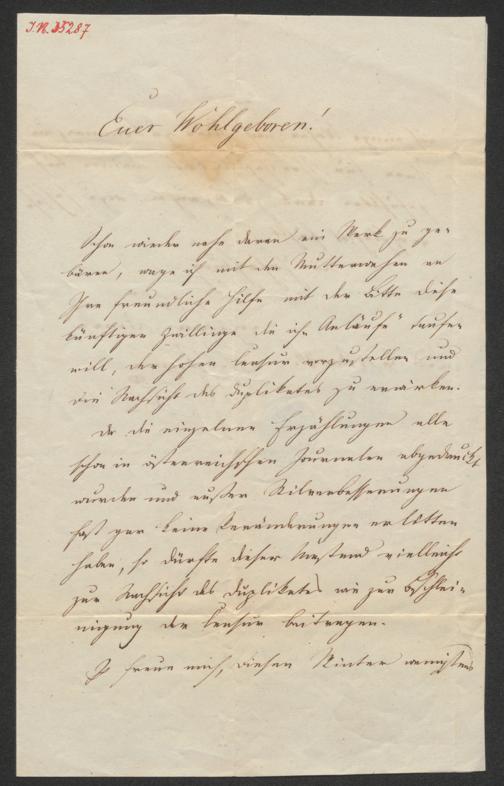 I.N. 35287
Euer Wohlgeboren!
Schon wieder nahe daran ein Werk zu ge-
bären, wage ich mit den Mutterwehen an
Ihre freundliche Hilfe mit der Bitte diese
künftigen Zwillinge die ich „Anläufe" taufen
will, der hohen Censur vorzustellen und
die Nachsicht des Duplikates zu erwirken.
Da die einzelnen Erzählungen alle
schon in österreichischen Journalen abgedruckt
wurden und außer Stilverbesserungen
fast gar keine Veränderungen erlitten
haben, so dürfte dieser Umstand vielleicht
zur Nachsicht des Duplikates wie zur Beschleu-
nigung der Censur beitragen.
Ich freue mich, diesen Winter wenigstens